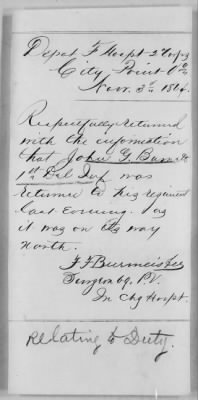 Depot F Hospt 2 Corps
City Point Va
Nov. 3d 1864.
Respectfully Returned
with the information
that John G. Barn
1st Del Inf was
returned to his regiment
last Evening. as
it was on its way
North.
J F Burmeister
Surgeon 69. P.V.
In Chg Hospt.
Relating to Duty.